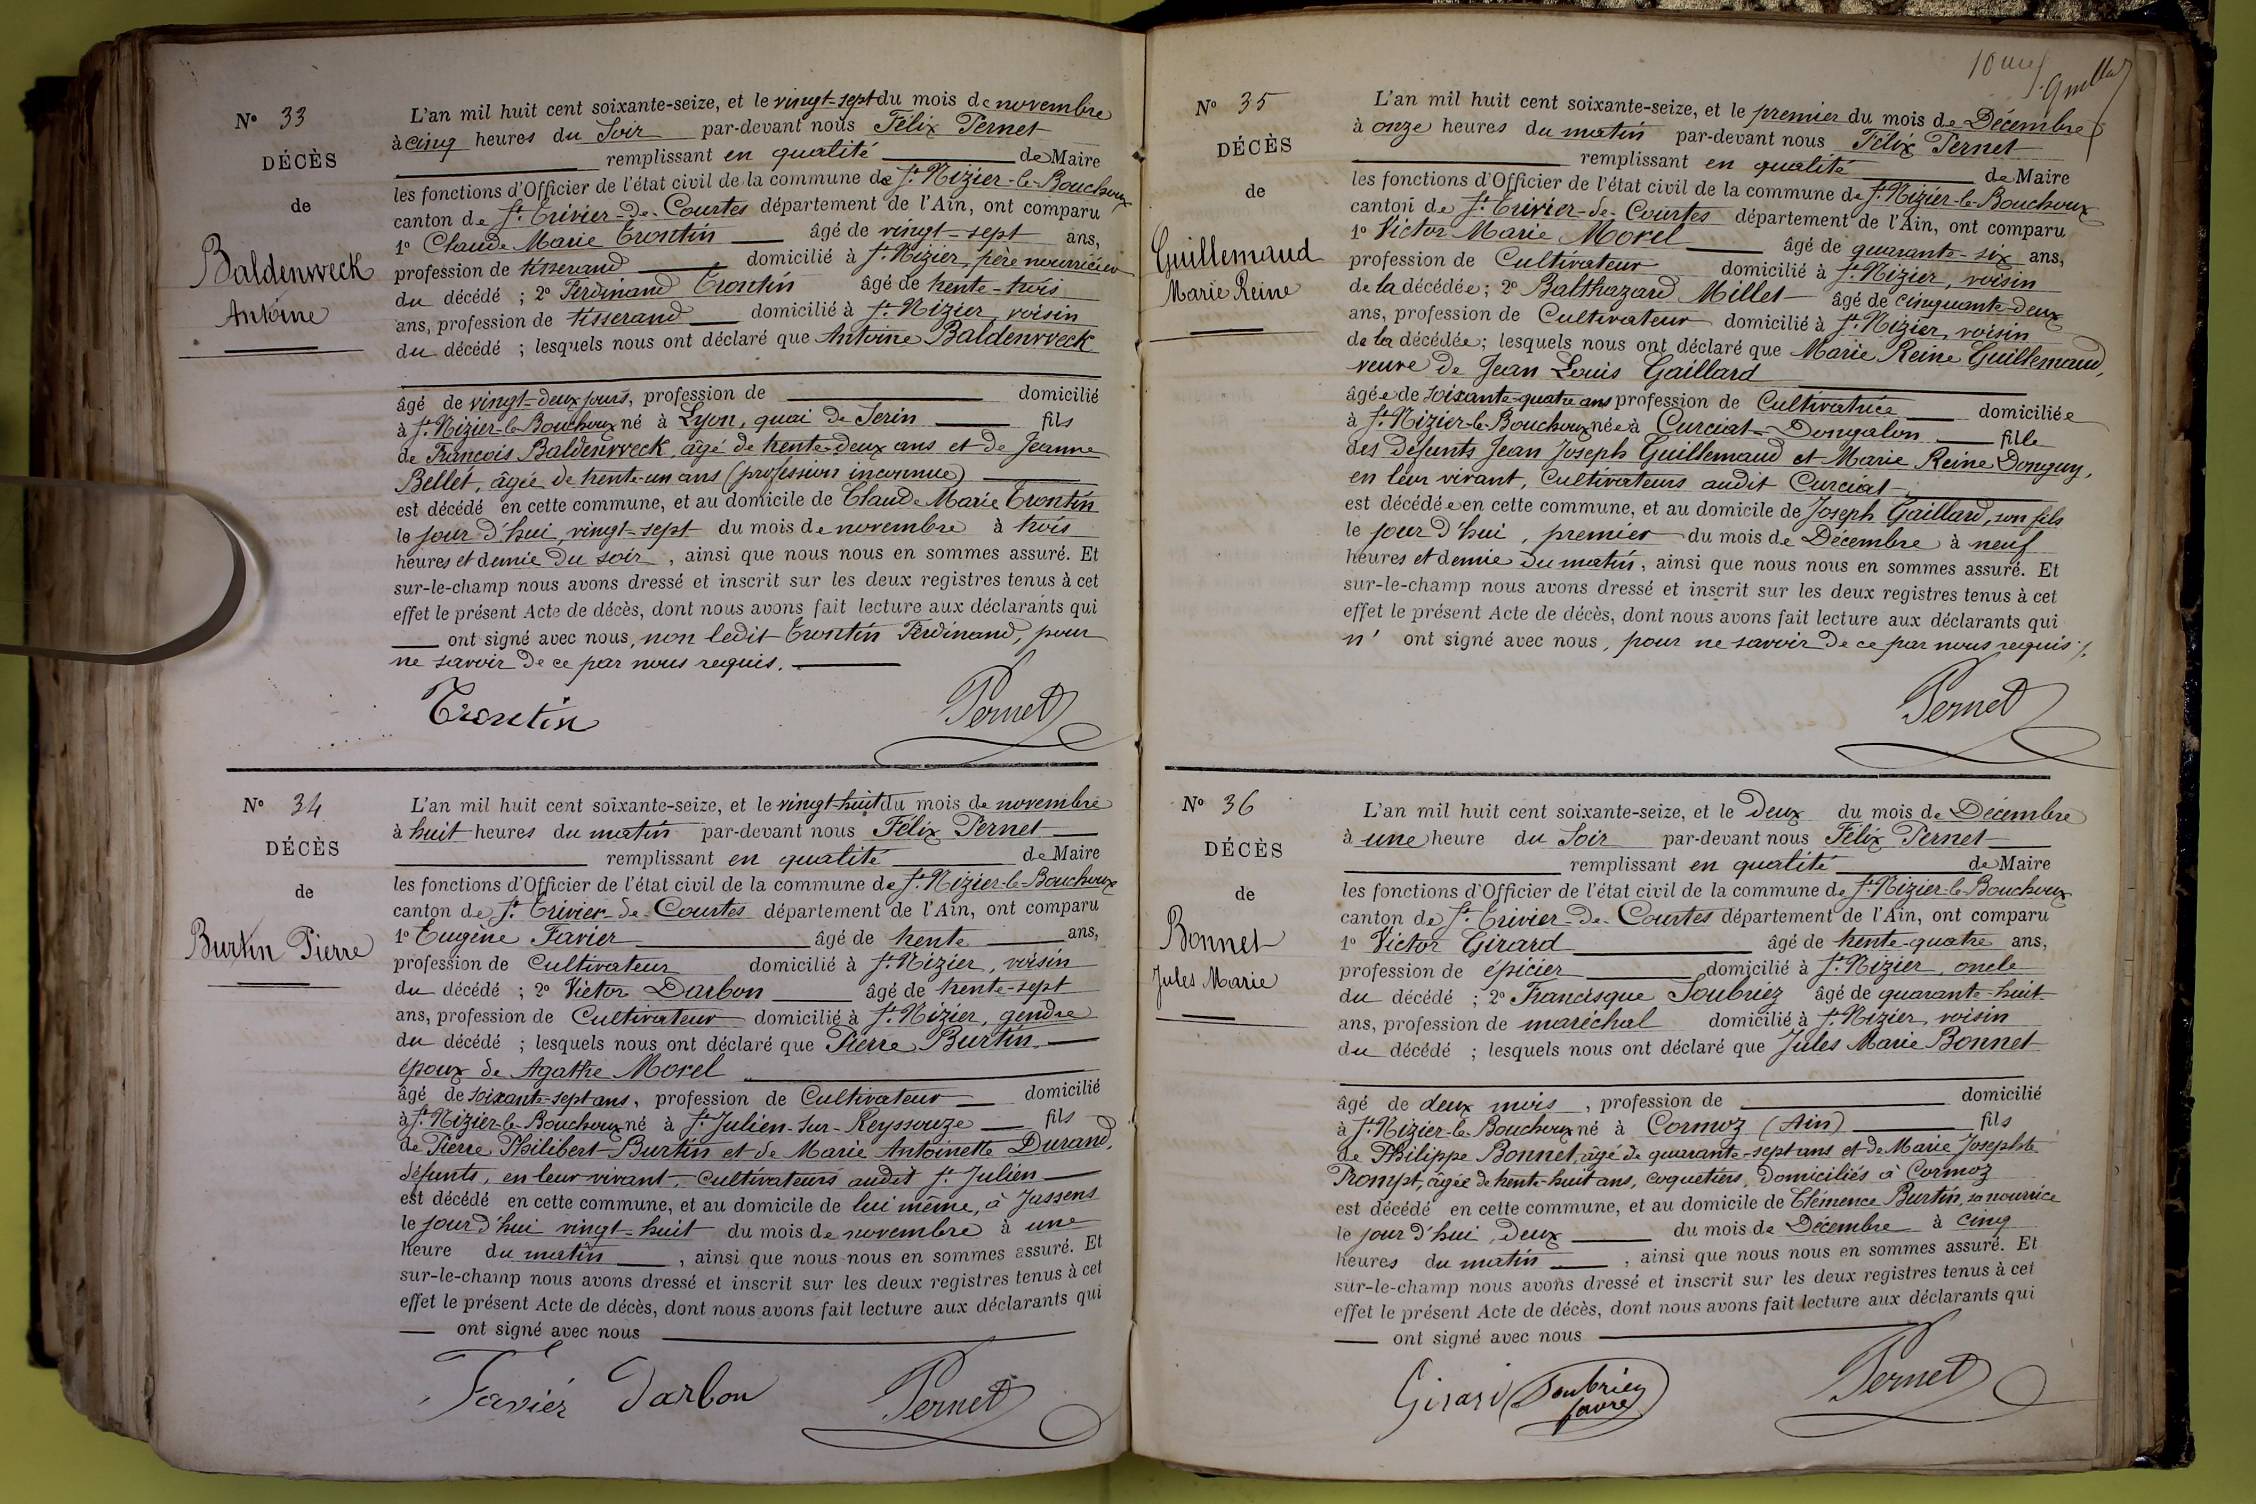 N° 33
DÉCÈS
de
Baldenweck
Antoine
L'an mil huit cent soixante-seize, et le vingt-sept du mois de novembre
à cinq heures du Soir par-devant nous Félix Pernet
remplissant en qualité de Maire
les fonctions d'Officier de l'état civil de la commune de St. Nizier-le-Bouchoux
canton de St. Trivier-de-Courtes département de l'Ain, ont comparu
1° Claude Marie Trontin âgé de vingt-sept ans,
profession de tisserand domicilié à St. Nizier, père nourricier
du décédé ; 2° Ferdinand Trontin âgé de trente-trois
ans, profession de tisserand domicilié à St. Nizier, voisin
du décédé ; lesquels nous ont déclaré que Antoine Baldenweck
âgé de vingt-deux jours, profession de domicilié
à St. Nizier-le-Bouchoux né à Lyon, quai de Serin fils
de François Baldenweck, âgé de trente-deux ans et de Jeanne
Bellet, âgée de trente-un ans (profession inconnue)
est décédé en cette commune, et au domicile de Claude Marie Trontin
le jour d'hui, vingt-sept du mois de novembre à trois
heures et demie du soir, ainsi que nous nous en sommes assuré. Et
sur-le-champ nous avons dressé et inscrit sur les deux registres tenus à cet
effet le présent Acte de décès, dont nous avons fait lecture aux déclarants qui
ont signé avec nous, non ledit Trontin Ferdinand, pour
ne savoir de ce par nous requis.
Trontin Pernet
N° 34
DÉCÈS
de
Burtin Pierre
L'an mil huit cent soixante-seize, et le vingt-huit du mois de novembre
à huit heures du matin par-devant nous Félix Pernet
remplissant en qualité de Maire
les fonctions d'Officier de l'état civil de la commune de St. Nizier-le-Bouchoux
canton de St. Trivier-de-Courtes département de l'Ain, ont comparu
1° Eugène Favier âgé de trente ans,
profession de Cultivateur domicilié à St. Nizier, voisin
du décédé ; 2° Victor Darbon âgé de trente-sept
ans, profession de Cultivateur domicilié à St. Nizier, gendre
du décédé ; lesquels nous ont déclaré que Pierre Burtin
époux de Agathe Morel
âgé de soixante-sept ans, profession de Cultivateur domicilié
à St. Nizier-le-Bouchoux né à St. Julien-sur-Reyssouze fils
de Pierre Philibert Burtin et de Marie Antoinette Durand,
défunts, en leur vivant, cultivateurs audit St. Julien
est décédé en cette commune, et au domicile de lui même, à Jassens
le jour d'hui vingt-huit du mois de novembre à une
heure du matin, ainsi que nous nous en sommes assuré. Et
sur-le-champ nous avons dressé et inscrit sur les deux registres tenus à cet
effet le présent Acte de décès, dont nous avons fait lecture aux déclarants qui
ont signé avec nous
Favier Darbon Pernet
10me
N° 35
DÉCÈS
de
Guillemaud
Marie Reine
L'an mil huit cent soixante-seize, et le premier du mois de Décembre
à onze heures du matin par-devant nous Félix Pernet
remplissant en qualité de Maire
les fonctions d'Officier de l'état civil de la commune de St. Nizier-le-Bouchoux
canton de St. Trivier-de-Courtes département de l'Ain, ont comparu
1° Victor Marie Morel âgé de quarante-six ans,
profession de Cultivateur domicilié à St. Nizier, voisin
de la décédée ; 2° Balthazard Millet âgé de cinquante-deux
ans, profession de Cultivateur domicilié à St. Nizier, voisin
de la décédée ; lesquels nous ont déclaré que Marie Reine Guillemaud,
veuve de Jean Louis Gaillard
âgée de soixante-quatre ans profession de Cultivatrice domiciliée
à St. Nizier-le-Bouchoux née à Curciat-Dongalon fille
des défunts Jean Joseph Guillemaud et Marie Reine Donguy,
en leur vivant, Cultivateurs audit Curciat
est décédée en cette commune, et au domicile de Joseph Gaillard, son fils
le jour d'hui, premier du mois de Décembre à neuf
heures et demie du matin, ainsi que nous nous en sommes assuré. Et
sur-le-champ nous avons dressé et inscrit sur les deux registres tenus à cet
effet le présent Acte de décès, dont nous avons fait lecture aux déclarants qui
n' ont signé avec nous, pour ne savoir de ce par nous requis ./.
Pernet
N° 36
DÉCÈS
de
Bonnet
Jules Marie
L'an mil huit cent soixante-seize, et le Deux du mois de Décembre
à une heure du Soir par-devant nous Félix Pernet
remplissant en qualité de Maire
les fonctions d'Officier de l'état civil de la commune de St. Nizier-le-Bouchoux
canton de St. Trivier-de-Courtes département de l'Ain, ont comparu
1° Victor Girard âgé de trente-quatre ans,
profession de épicier domicilié à St. Nizier, oncle
du décédé ; 2° Francisque Soubriez âgé de quarante-huit
ans, profession de maréchal domicilié à St. Nizier, voisin
du décédé ; lesquels nous ont déclaré que Jules Marie Bonnet
âgé de deux mois, profession de domicilié
à St. Nizier-le-Bouchoux né à Cormoz (Ain) fils
de Philippe Bonnet, âgé de quarante-sept ans et de Marie Josephte
Prompt, âgée de trente-huit ans, coquetiers, domiciliés à Cormoz
est décédé en cette commune, et au domicile de Clémence Burtin, sa nourrice
le jour d'hui, deux du mois de Décembre à cinq
heures du matin, ainsi que nous nous en sommes assuré. Et
sur-le-champ nous avons dressé et inscrit sur les deux registres tenus à cet
effet le présent Acte de décès, dont nous avons fait lecture aux déclarants qui
ont signé avec nous
Girard Soubriez Pernet
favre